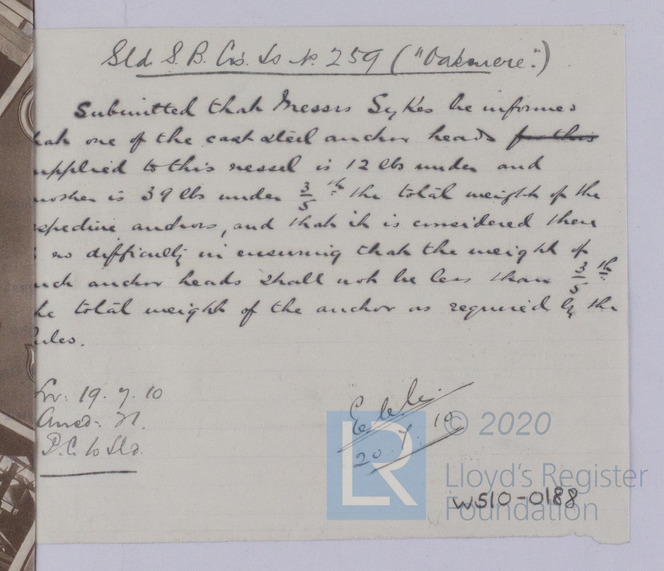 Sld S. B. Co's. No. 259 ("Oakmere".)
Submitted that Messrs Sykes be informed
hat one of the cast steel anchor heads for this
upplied to this vessel is 12 lbs under and
nother is 39 lbs under 3/5 th the total weight of the
spective anchors, and that it is considered there
s no difficulty in ensuring that the weight of
uch anchor heads shall not be less than 3/5 th
he total weight of the anchor as required by the
ules.
19. 7. 10
P.C. to Sld.
20. 7. 10
LR
© 2020
Lloyd's Register
Foundation
W510-0188